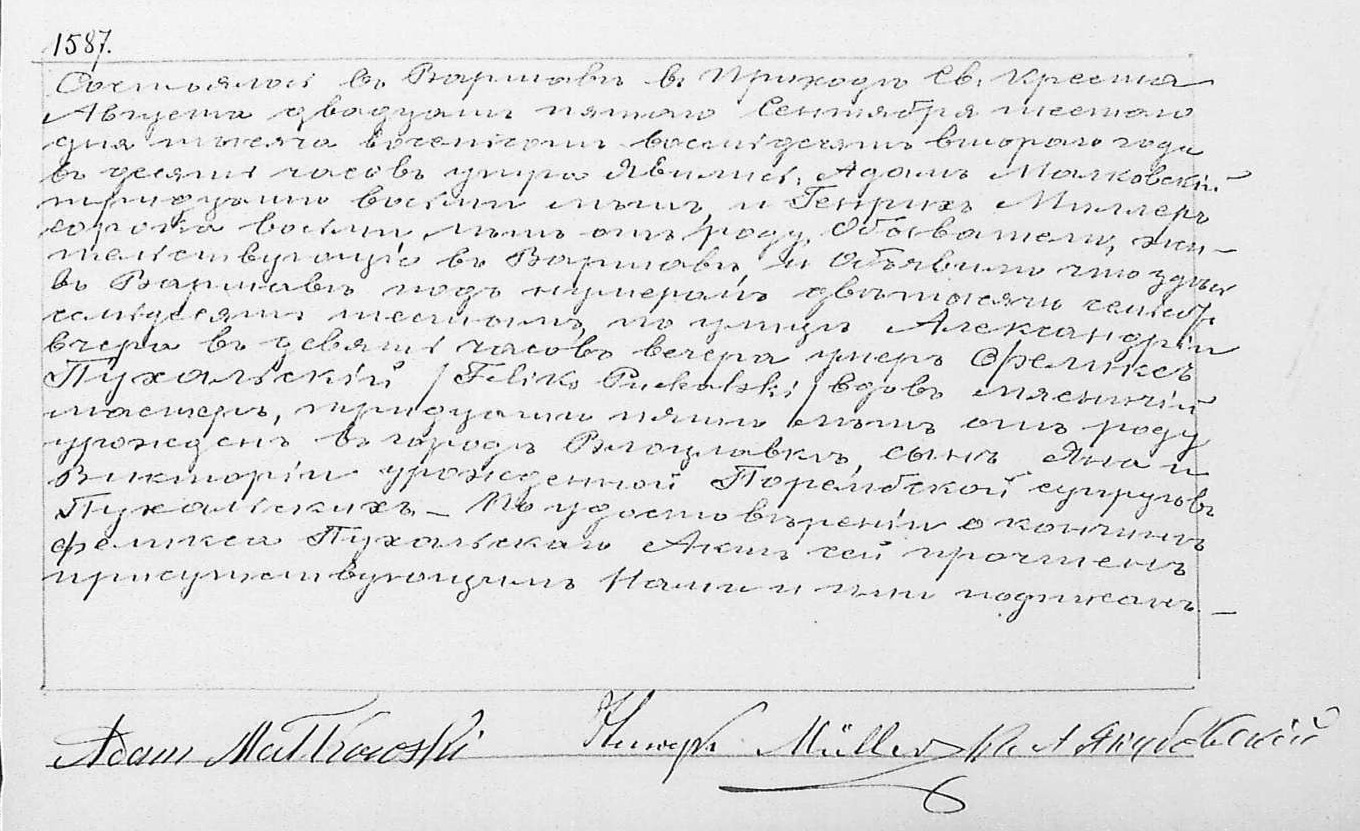 1587.
Состоялось въ Варшавѣ въ Приходѣ Св. Креста
Августа двадцать пятаго Сентября шестаго
дня тысяча восемьсотъ восемьдесятъ втораго года
въ десять часовъ утра Явились, Адамъ Малковскій
тридцати восьми лѣтъ, и Генрихъ Миллеръ
сорока восьми лѣтъ отъ роду, Обыватели, жи-
тельствующіе въ Варшавѣ, и Объявили что здѣсь
въ Варшавѣ подъ нумеромъ двѣ тысячи семьсотъ
семьдесятъ шестымъ, по улицѣ Александріи
вчера въ девять часовъ вечера умеръ Феликсъ
Пухальскій /Feliks Puchalski/ вдовъ мясничій
мастеръ, тридцати пяти лѣтъ отъ роду
урожденъ въ городѣ Влоцлавкѣ, сынъ Яна и
Викторіи урожденной Порембской супруговъ
Пухальскихъ. – По удостовѣреніи о кончинѣ
Феликса Пухальскаго Актъ сей прочтенъ
присутствующимъ Нами и ими подписанъ. –
Adam Małkowski Müller Якубовскій